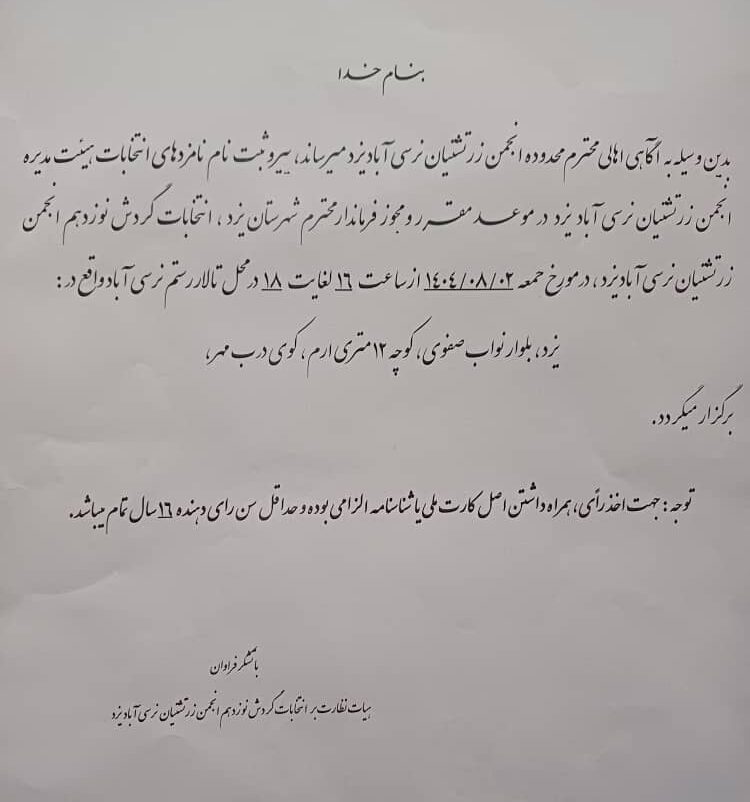 بنام خدا
بدین وسیله به آگاهی اهالی محترم محدوده انجمن زرتشتیان نرسی آباد یزد میرساند، پیرو ثبت نام نامزدهای انتخابات هیئت مدیره
انجمن زرتشتیان نرسی آباد یزد در موعد مقرر و مجوز فرماندار محترم شهرستان یزد ، انتخابات گردش نوزدهم انجمن
زرتشتیان نرسی آباد یزد، در مورخ جمعه ۱۴۰۴/۰۸/۰۲ از ساعت ۱۶ لغایت ۱۸ در محل تالار رستم نرسی آباد واقع در :
یزد، بلوار نواب صفوی، کوچه ۱۲ متری ارم ، کوی درب مهر،
برگزار میگردد.
توجه : جهت اخذ رأی، همراه داشتن اصل کارت ملی یا شناسنامه الزامی بوده و حداقل سن رای دهنده ۱۶ سال تمام میباشد.
با تشکر فراوان
هیات نظارت بر انتخابات گردش نوزدهم انجمن زرتشتیان نرسی آباد یزد